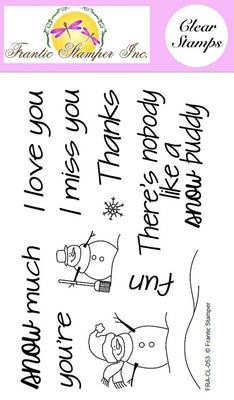 Frantic Stamper Inc.
Clear
Stamps
I love you
I miss you
Thanks
There's nobody
like a
snow buddy
snow much
you're
fun
FRA-CL-053 © Frantic Stamper